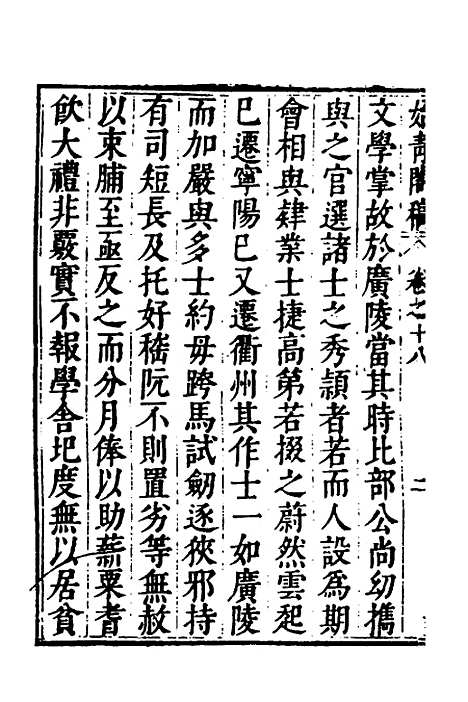 始青閣稿 卷之十八 二
文學掌故於廣陵當其時比部公尚幼攜
與之官選諸士之秀頴者若而人設為期
會相與肄業士捷高第若掇之蔚然雲起
已遷寧陽已又遷衢州其作士一如廣陵
而加嚴與多士約毋跨馬試劒逐狹邪持
有司短長及托好嵇阮不則置劣等無赦
以束脯至亟反之而分月俸以助薪粟耆
飲大禮非覈實不報學舍圯度無以居貧